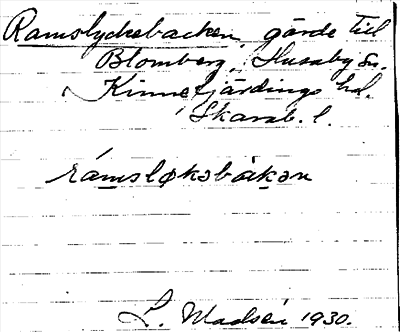 Ramslyckebacken, gärde till
Blomberg, Husaby sn.
Kinnefjärdings hd.
Skarab. l.
rámsløkəbàkən
L. Madsén 1930.